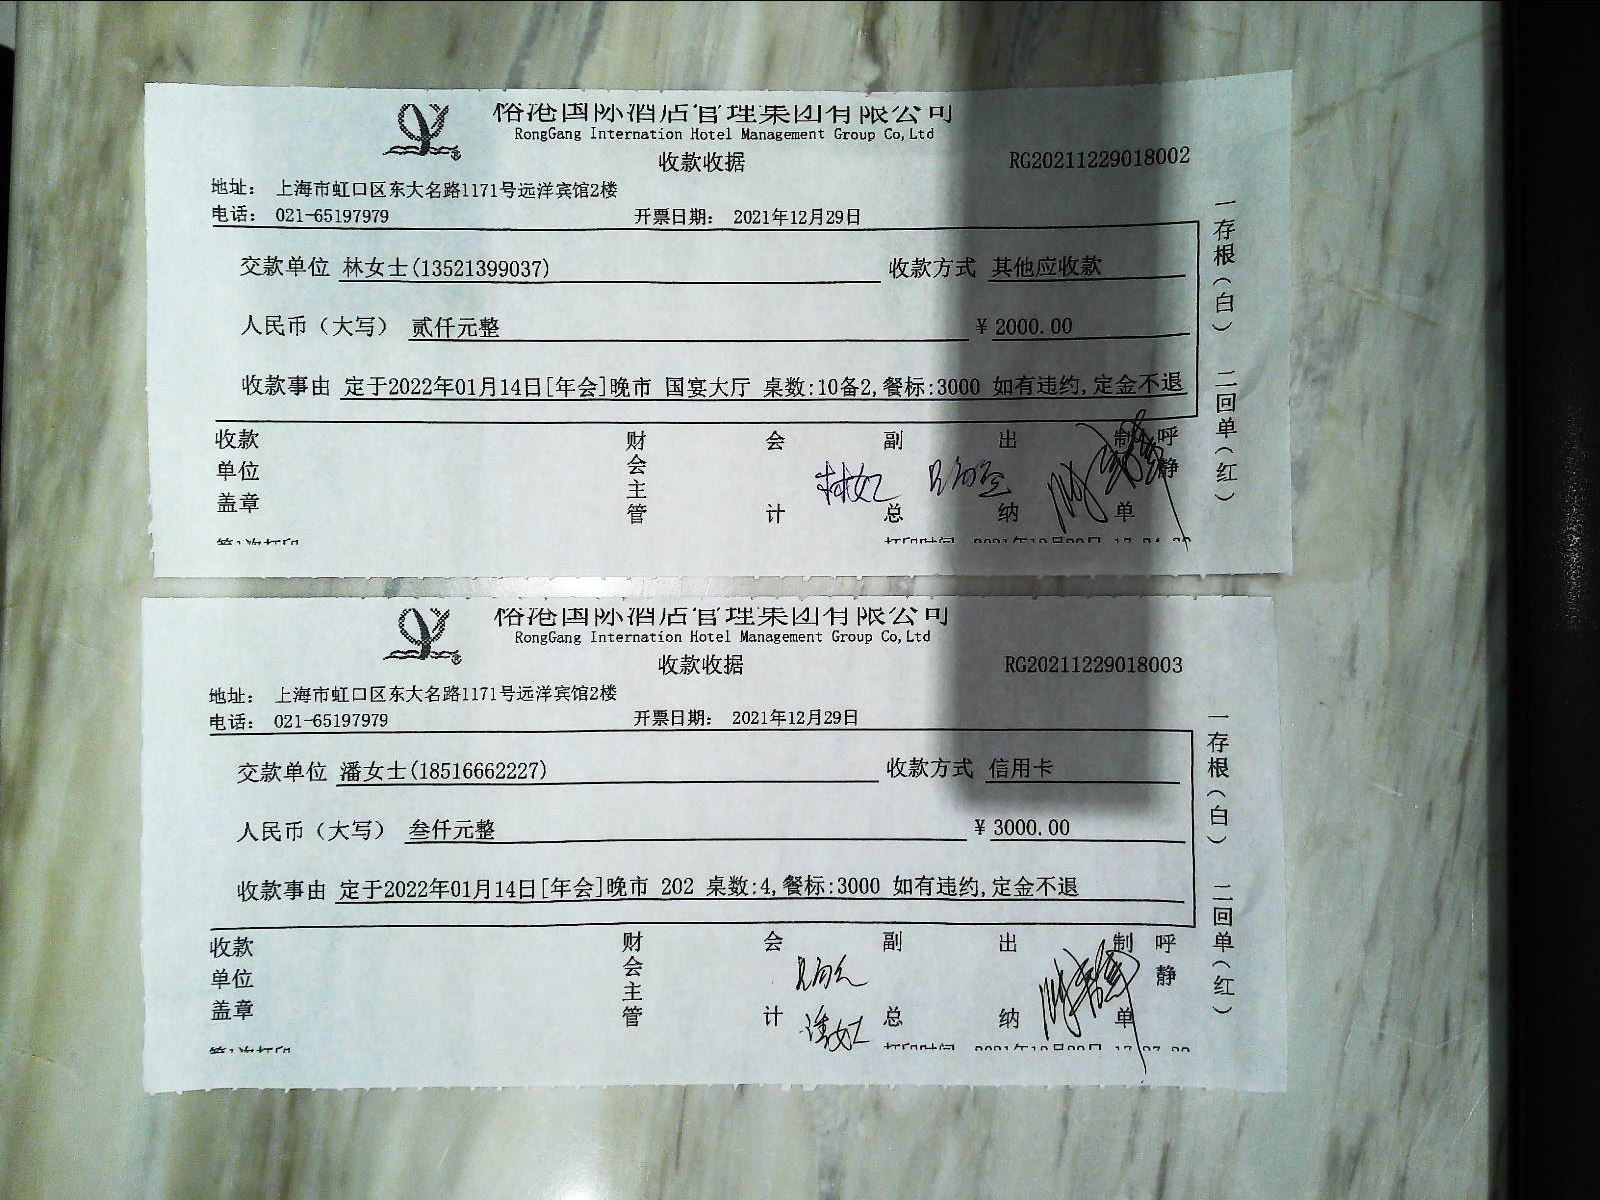 榕港国际酒店管理集团有限公司
RongGang Internation Hotel Management Group Co,Ltd
收款收据
RG20211229018002
地址： 上海市虹口区东大名路1171号远洋宾馆2楼
电话： 021-65197979 开票日期： 2021年12月29日
交款单位 林女士(13521399037) 收款方式 其他应收款
人民币（大写） 贰仟元整 ¥ 2000.00
收款事由 定于2022年01月14日[年会]晚市 国宴大厅 桌数:10备2,餐标:3000 如有违约,定金不退
收款单位盖章 财会主管 会计 副总 出纳 制单 呼静
林女士
第1次打印 打印时间
一存根（白） 二回单（红）
榕港国际酒店管理集团有限公司
RongGang Internation Hotel Management Group Co,Ltd
收款收据
RG20211229018003
地址： 上海市虹口区东大名路1171号远洋宾馆2楼
电话： 021-65197979 开票日期： 2021年12月29日
交款单位 潘女士(18516662227) 收款方式 信用卡
人民币（大写） 叁仟元整 ¥ 3000.00
收款事由 定于2022年01月14日[年会]晚市 202 桌数:4,餐标:3000 如有违约,定金不退
收款单位盖章 财会主管 会计 副总 出纳 制单 呼静
潘女士
第1次打印 打印时间
一存根（白） 二回单（红）